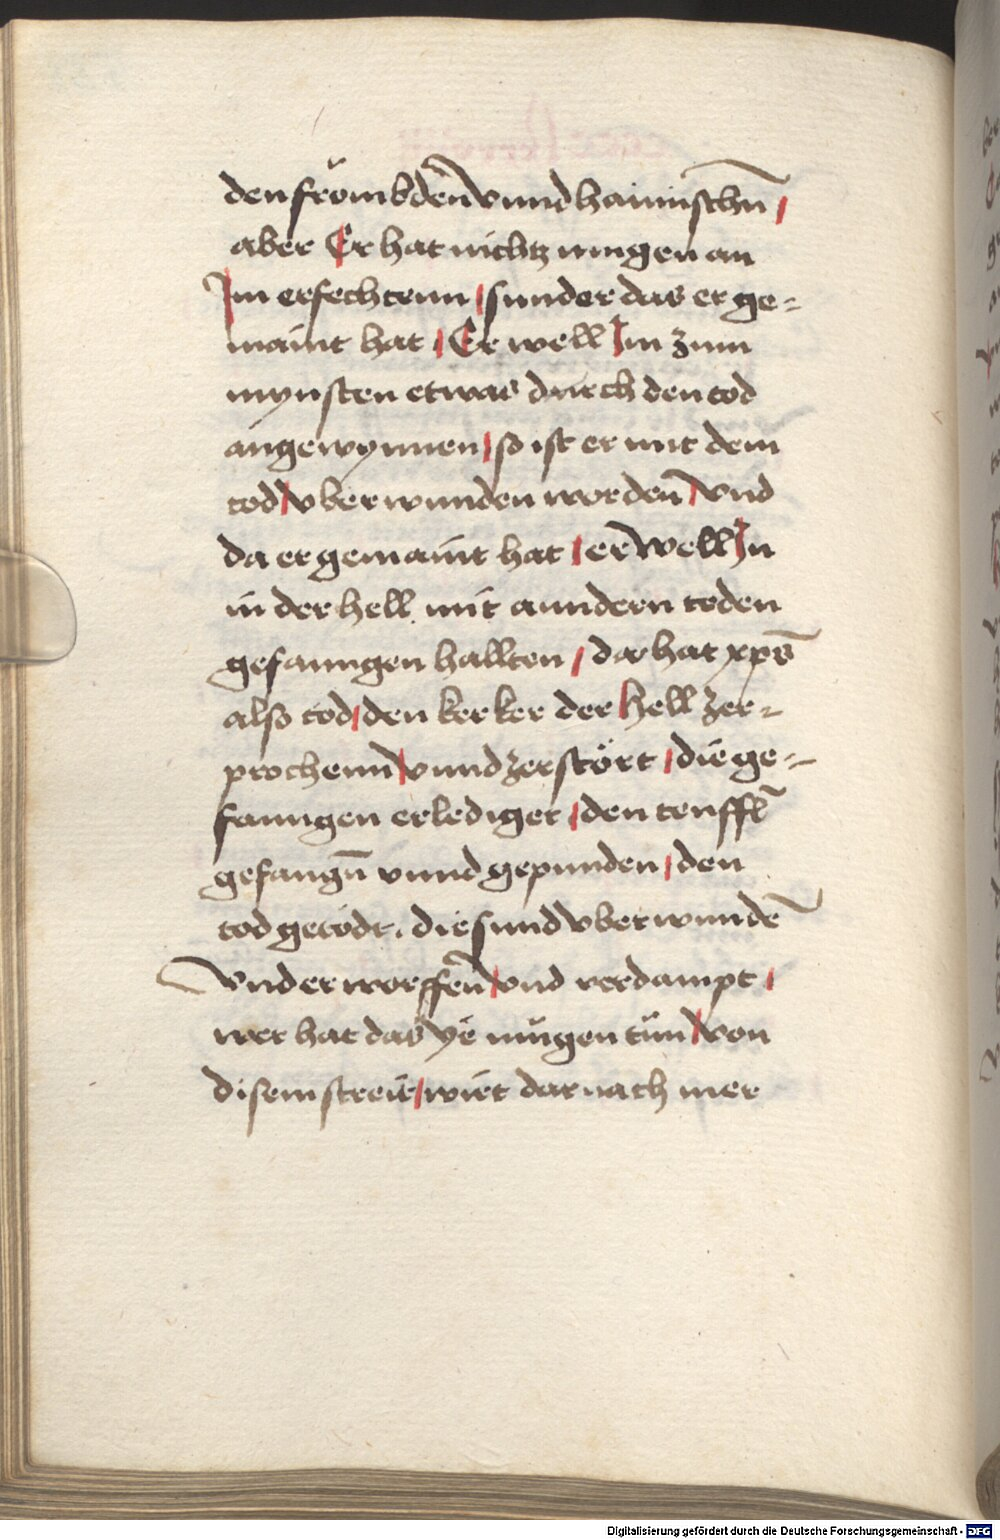 den frömbden vnnd haimischn /
aber Er hat nichtz mugen an
Im erfechtenn / sunder das er ge-
maint hat / Er well Im zum
mynsten etwas durch den tod
angewynnen / so ist er mit dem
tod / vberwunden worden / vnd
da er gemaint hat / er well In
in der hell mit anndern toden
gefanngen hallten / da hat xp̄s
also tod / den kerker der hell zer-
prochenn / vnnd zerstört / die ge-
fanngen erlediget / den teuffl
gefangn̄ vnnd gepunden / den
tod getödt. die sund vberwunden̄
vnderworffen / vnd verdampt /
wer hat das ye mügen tün / von
disem streit / wirt darnach mer
Digitalisierung gefördert durch die Deutsche Forschungsgemeinschaft - DFG